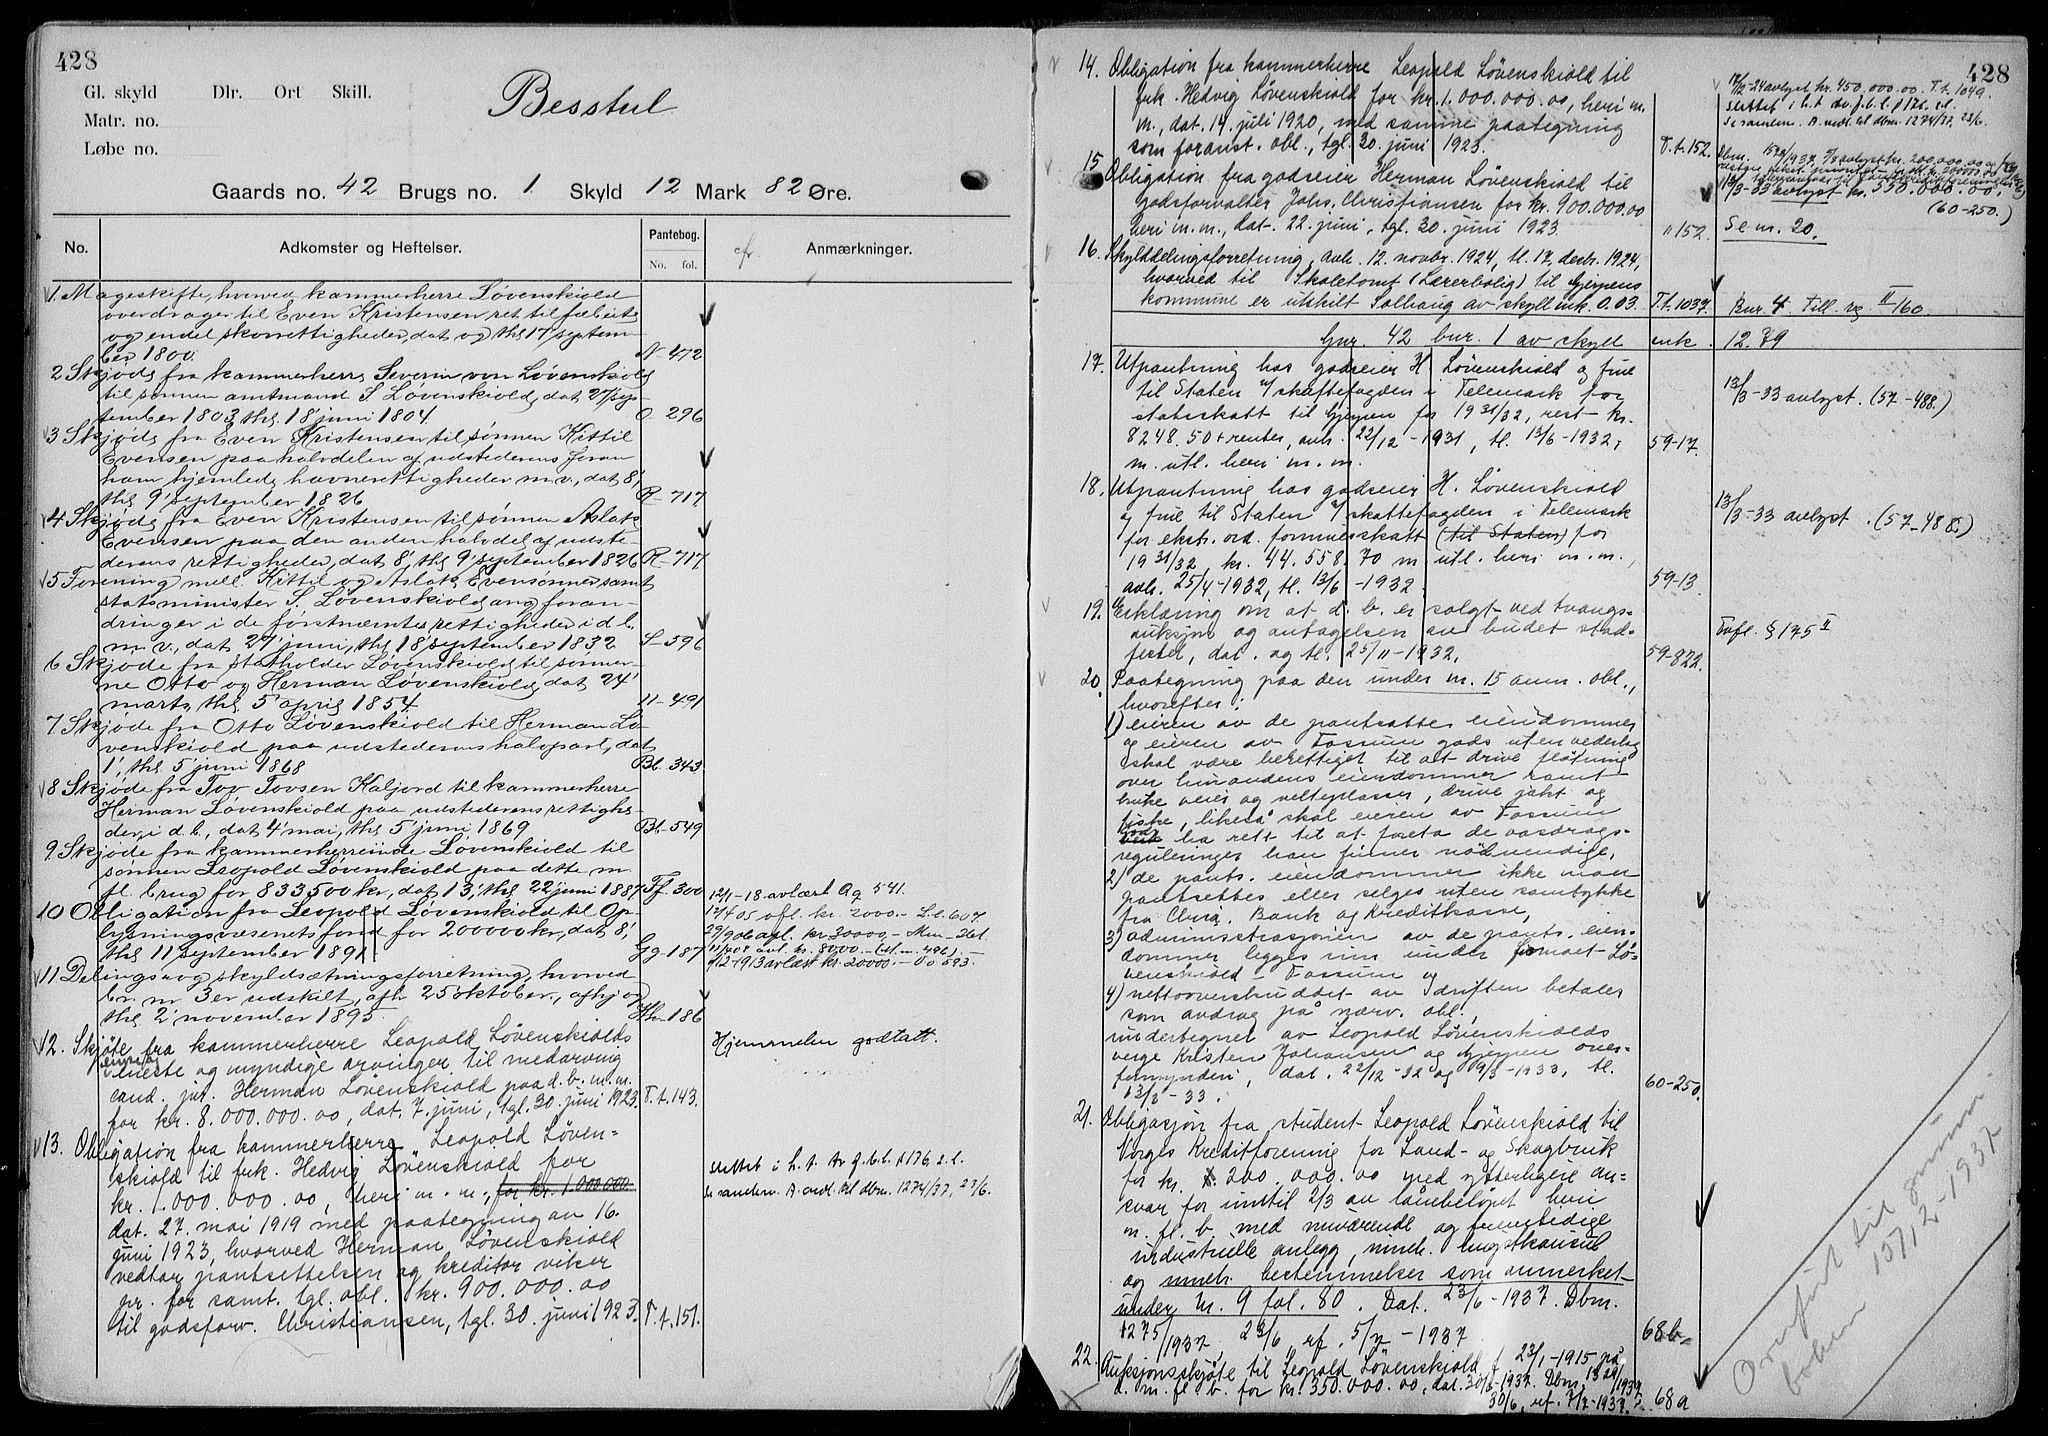 428
Gl. skyld Dlr. Ort Skill.
Matr. no.
Løbe no.
Besstul
Gaards no. 42 Brugs no. 1 Skyld 12 Mark 82 Øre.
No. Adkomster og Heftelser. Pantebog. No. fol. cfr. Anmærkninger.
1 Mageskifte, hvorved kammerherre Løvenskiold
overdrager til Even Kristensen ret til fæbeite
og endel skovrettigheder, dat og thl 17 septem-
ber 1800. N 472
2 Skjøde fra kammerherre Severin von Løvenskiold
til sønnen amtmand S Løvenskiold, dat 27 sep-
tember 1803, thl 18' juni 1804. O- 296
3 Skjøde fra Even Kristensen til sønnen Kittil
Evensen paa halvdelen af udstederens foran
ham hjemlede havnerettigheder m.v., dat 8',
thl 9' september 1826 R- 717
4 Skjøde fra Even Kristensen til sønnen Aslak
Evensen paa den anden halvdel af udste-
derens rettigheder, dat 8', thl 9' september 1826 R-717
5 Forening mell. Kittil og Aslak Evensønner samt
statsminister S. Løvenskiold ang foran-
dringer i de førstnævntes rettigheder i d b.
m v., dat 27' juni, thl 18' september 1832 S- 596
6 Skjøde fra statholder Løvenskiold til sønner-
ne Otto og Herman Løvenskiold, dat 24'
marts, thl 5' april 1854 11- 491
7 Skjøde fra Otto Løvenskiold til Herman Lø-
venskiold paa udstederens halvpart, dat
1', thl 5' juni 1868 Bb- 343
8 Skjøde fra Tov Tovsen Kaljord til kammerherre
Herman Løvenskiold paa udstederens rettighe-
der i d. b., dat 4' mai, thl 5' juni 1869 Bb- 549
9 Skjøde fra kammerherreinde Løvenskiold til
sønnen Leopold Løvenskiold paa dette m
fl brug for 833500 kr, dat 13', thl 22' juni 1887 Ff- 300
10 Obligation fra Leopold Løvenskiold til Op-
lysningsvæsenets fond for 200000 kr, dat 8',
thl 11 september 1891. Gg- 187
12/1-18 avlæst Qq 541.
12/4 05 kr. 2000.- L.l. 607
29/9 06 kr. 20000.-
11/4 08 kr. 8000.- 496)
9/12-1913 avlæst kr. 20000.- Oo 593.-
11 Delings- og skyldsætningsforretning, hvorved
br. nr 3 er udskilt, afh 25 oktober, afhj og
thl 2' november 1895 186
12. Skjøte fra kammerherre Leopold Løvenskiolds
eneste og myndige arvinger til medarving
cand. jur. Herman Løvenskiold paa d. b. m. m.
for kr. 8.000.000.00, dat. 7. juni, tgl. 30. juni 1923. T.t. 143.
Hjemmelen godtatt.
13. Obligation fra kammerherre Leopold Løven=
skiold til frk. Hedvig Løvenskiold for
kr. 1.000.000.00, heri m. m., for kr. 1.000.000
dat. 27. mai 1919 med paategning av 16.
juni 1923, hvorved Herman Løvenskiold
vedtar pantsettelsen og kreditor viker
pr. for samt. tgl. obl. kr. 900.000.00
til godsforv. Christiansen, tgl. 30. juni 1923. T.t. 151.
slettet i h. t. tv. f. b. l. § 176, 2. l.
Se samlem. A. vedl. til dbm. 1274/37, 23/6.
428
14. Obligation fra kammerherre Leopold Løvenskiold til
frk. Hedvig Løvenskiold for kr. 1.000.000.00, heri m.
m., dat. 14. juli 1920, med samme paategning
som foranst. obl., tgl. 30. juni 1923. T.t. 152.
-24 avlyst kr. 450,000.00. T.t. 1049.
slettet i h. t. tv. f. b. l. § 176, 2. l.
Se samlem. A. vedl. til dbm. 1274/37, 23/6.
15 Obligation fra godseier Herman Løvenskiold til
godsforvalter Johs. Christiansen for kr. 900.000.00
heri m. m., dat. 22. juni, tgl. 30. juni 1923 " 152.
13/3-33 avlyst kr. 550.000.00
(60-250.)
Se nr. 20.
16. Skylddelingsforretning, avh. 12. novbr. 1924, tl. 17. desbr. 1924,
hvorved til Skoletomt (Lærerbolig) til Gjerpens
kommune er utskilt Solhaug av skyld mk. 0.03. T.t. 1037. Bnr. 4 Till. vg II/160
Gnr. 42 bnr. 1 av skyld mk. 12.79
17. Utpantning hos godseier H. Løvenskiold og frue
til Staten v/skattefogden i Telemark for
statsskatt til Gjerpen for 1931/32, rest kr.
8248.50 + renter, avh. 22/12-1931, tl. 13/6-1932,
m. utl. heri m. m. 59-17.
13/3-33 avlyst. (57-488.)
18. Utpantning hos godseier H. Løvenskiold
og frue til Staten v/skattefogden i Telemark
for ekstr. ord. formuesskatt (til Staten) for
1931/32, kr. 44.558.70 m utl. heri m. m.,
avh. 25/4-1932, tl. 13/6-1932. 59-13.
13/3-33 avlyst. (57-488.)
19. Erklæring om at d. b. er solgt ved tvangs-
auksjon og antagelsen av budet stad-
festet, dat. og tl. 25/11-1932. 59-822.
Tvfl. § 175 II
20. Paategning paa den under nr. 15 anm. obl.,
hvorefter:
1) eieren av de pantsatte eiendommer
og eieren av Fossum gods uten vederlag
skal være berettiget til at drive fløtning
over hinandens eiendommer samt
bruke veier og velteplasser, drive jakt og
fiske, likeså skal eieren av Fossum
gods ha rett til at foreta de vasdrags-
reguleringer han finner nødvendige,
2) de pants. eiendommer ikke maa
pantsettes eller selges uten samtykke
fra Chra. Bank og Kreditkasse,
3) administrasjonen av de pants. eien-
dommer legges inn under firmaet Lø-
venskiold - Fossum og
4) nettooverskuddet av driften betales
som avdrag på nærv. obl.,
undertegnet av Leopold Løvenskiolds
verge Kristen Johansen og Gjerpen over-
formynderi, dat. 22/12-32 og 9/3-1933, tl.
13/3-33. 60-250.
21. Obligasjon fra student Leopold Løvenskiold til
Norges Kreditforening for Land- og Skogbruk
for kr. 200.000.00 med ytterligere an-
svar for inntil 2/3 av lånebeløpet heri
m. fl. b. med nuværende og fremtidige
industrielle anlegg, inneh.
og inneh. bestemmelser som anmerket
under nr. 9 fol. 80. Dat. 23/6-1937. Dbm.
1275/1937, 23/6 rf. 5/7-1937 68b
22. Auksjonsskjøte til Leopold Løvenskiold f. 23/1-1915 på
d. m. fl b. for kr. 350.000.00, dat. 30/6-1937. Dbm.
30/6, rf. 7/7-1937. 68a
Overført til grunn
boken 1937